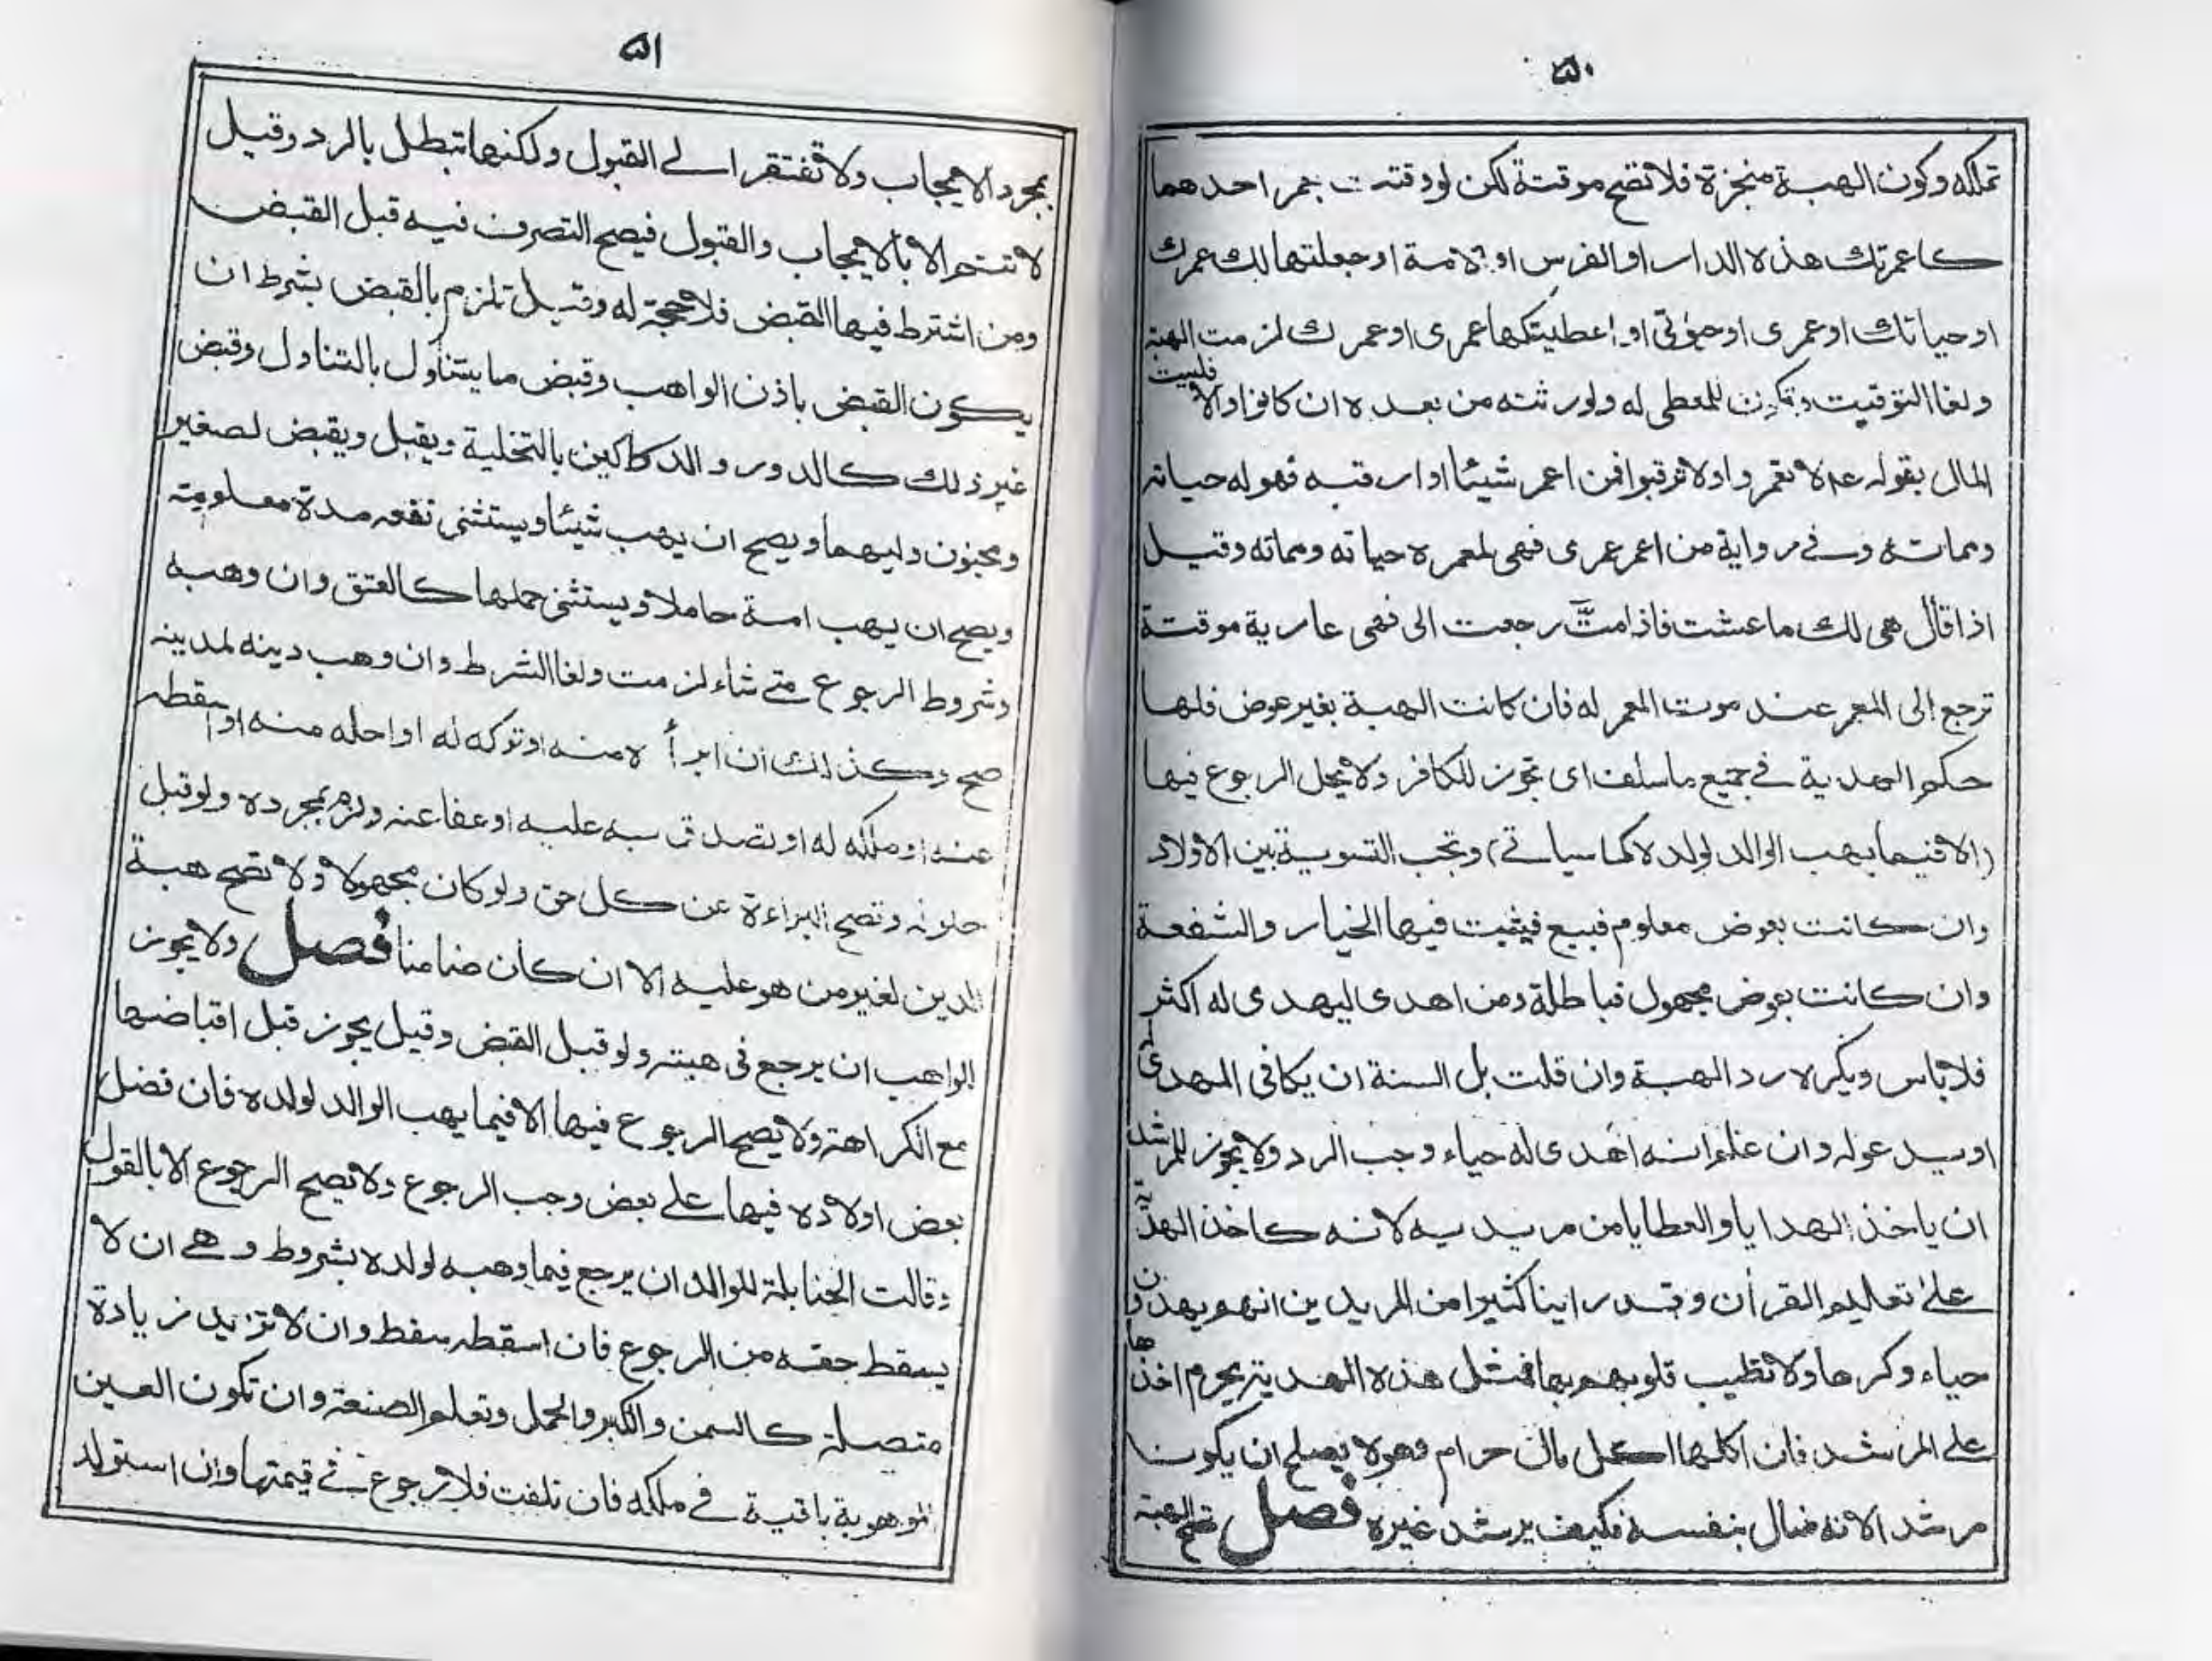 ٥٠
تملكه وكون الهبة منجزة فلا تصح موقتة لكن لو وقتت بعمر احدهما
كاعمرتك هذه الدار او الفرس او الامة او جعلتها لك عمرك
او حياتك او عمرى او حيوتى او اعطيتكها عمرى او عمرك لزمت الهبة
ولغا التوقيت وتكون للمعطى له ولورثته من بعده ان كانوا والا فلبيت
المال بقوله عم لا تعمروا ولا ترقبوا فمن اعمر شيئا او ارقبه فهو له حياته
ومماته وفى رواية من اعمر عمرى فهى لمعمره حياته ومماته وقيل
اذا قال هى لك ما عشت فاذا متّ رجعت الى فهى عارية موقتة
ترجع الى المعمر عند موت المعمر له فان كانت الهبة بغير عوض فلها
حكم الهدية فى جميع ما سلف اى تجوز للكافر ولا يحل الرجوع فيها
(الا فيما يهب الوالد لولده كما سياتى) وتجب التسوية بين الاولاد
وان كانت بعوض معلوم فبيع فيثبت فيها الخيار والشفعة
وان كانت بعوض مجهول فباطلة ومن اهدى ليهدى له اكثر
فلا باس ويكره رد الهبة وان قلت بل السنة ان يكافى المهدى
او يدعو له وان علم انه اهدى له حياء وجب الرد ولا يجوز للمرشد
ان ياخذ الهدايا والعطايا من مريديه لانه كاخذ الهدية
على تعليم القرأن وقد راينا كثيرا من المريدين انهم يهدون
حياء وكرها ولا تطيب قلوبهم بها فمثل هذه الهدية يحرم اخذها
على المرشد فان اكلها اكل مال حرام وهو لا يصلح ان يكون
مرشد الانه ضال بنفسه فكيف يرشد غيره فصل تصح الهبة
٥١
بمجرد الايجاب ولا تفتقر الى القبول ولكنها تبطل بالرد وقيل
لا تتم الا بالايجاب والقبول فيصح التصرف فيه قبل القبض
ومن اشترط فيها القبض فلا حجة له وقيل تلزم بالقبض بشرط ان
يكون القبض باذن الواهب وقبض ما يتناول بالتناول وقبض
غير ذلك كالدور والدكاكين بالتخلية ويقبل ويقبض لصغير
ومجنون وليهما ويصح ان يهب شيئا ويستثنى نفعه مدة معلومة
ويصح ان يهب امة حاملا ويستثنى حملها كالعتق وان وهبه
وشروط الرجوع متى شاء لزمت ولغا الشرط وان وهب دينه لمدينه
صح وكذلك ان ابرأه منه او تركه له او احله منه او اسقطه
عنه او ملكه له او تصدق به عليه او عفا عنه ولزم بمجرده ولو قبل
حلوله وتصح البراءة عن كل حق ولو كان مجهولا ولا تصح هبة
الدين لغير من هو عليه الا ان كان ضامنا فصل ولا يجوز
الواهب ان يرجع فى هبته ولو قبل القبض وقيل يجوز قبل اقباضها
مع الكراهة ولا يصح الرجوع فيها الا فيما يهب الوالد لولده فان فضل
بعض اولاده فيها على بعض وجب الرجوع ولا يصح الرجوع الا بالقول
وقالت الحنابلة للوالد ان يرجع فيما وهبه لولده بشروط وهى ان لا
يسقط حقه من الرجوع فان اسقطه سقط وان لا تزيد زيادة
متصلة كالسمن والكبر والحمل وتعلم الصنعة وان تكون العين
الموهوبة باقية فى ملكه فان تلفت فلا رجوع فى قيمتها وان استولد